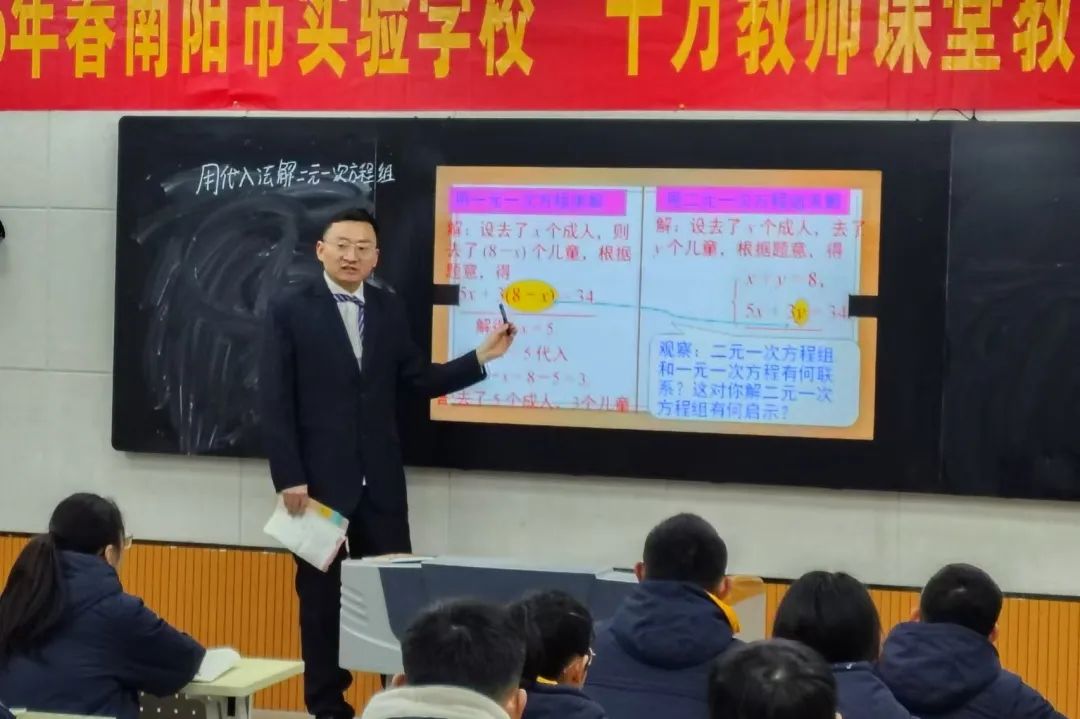 年春南阳市实验学校 十万教师课堂教
用代入法解二元一次方程组
用一元一次方程求解
解:设去了x个成人,则
去了(8-x)个儿童,根据
题意,得
5x+3(8-x)=34
解得x=5
5代入
8-x=8-5=3
去了5个成人,3个儿童
用二元一次方程组求解
解:设去了x个成人,去了
y个儿童,根据题意,得
x+y=8,
5x+3y=34
观察:二元一次方程组
和一元一次方程有何联
系?这对你解二元一次
方程组有何启示?